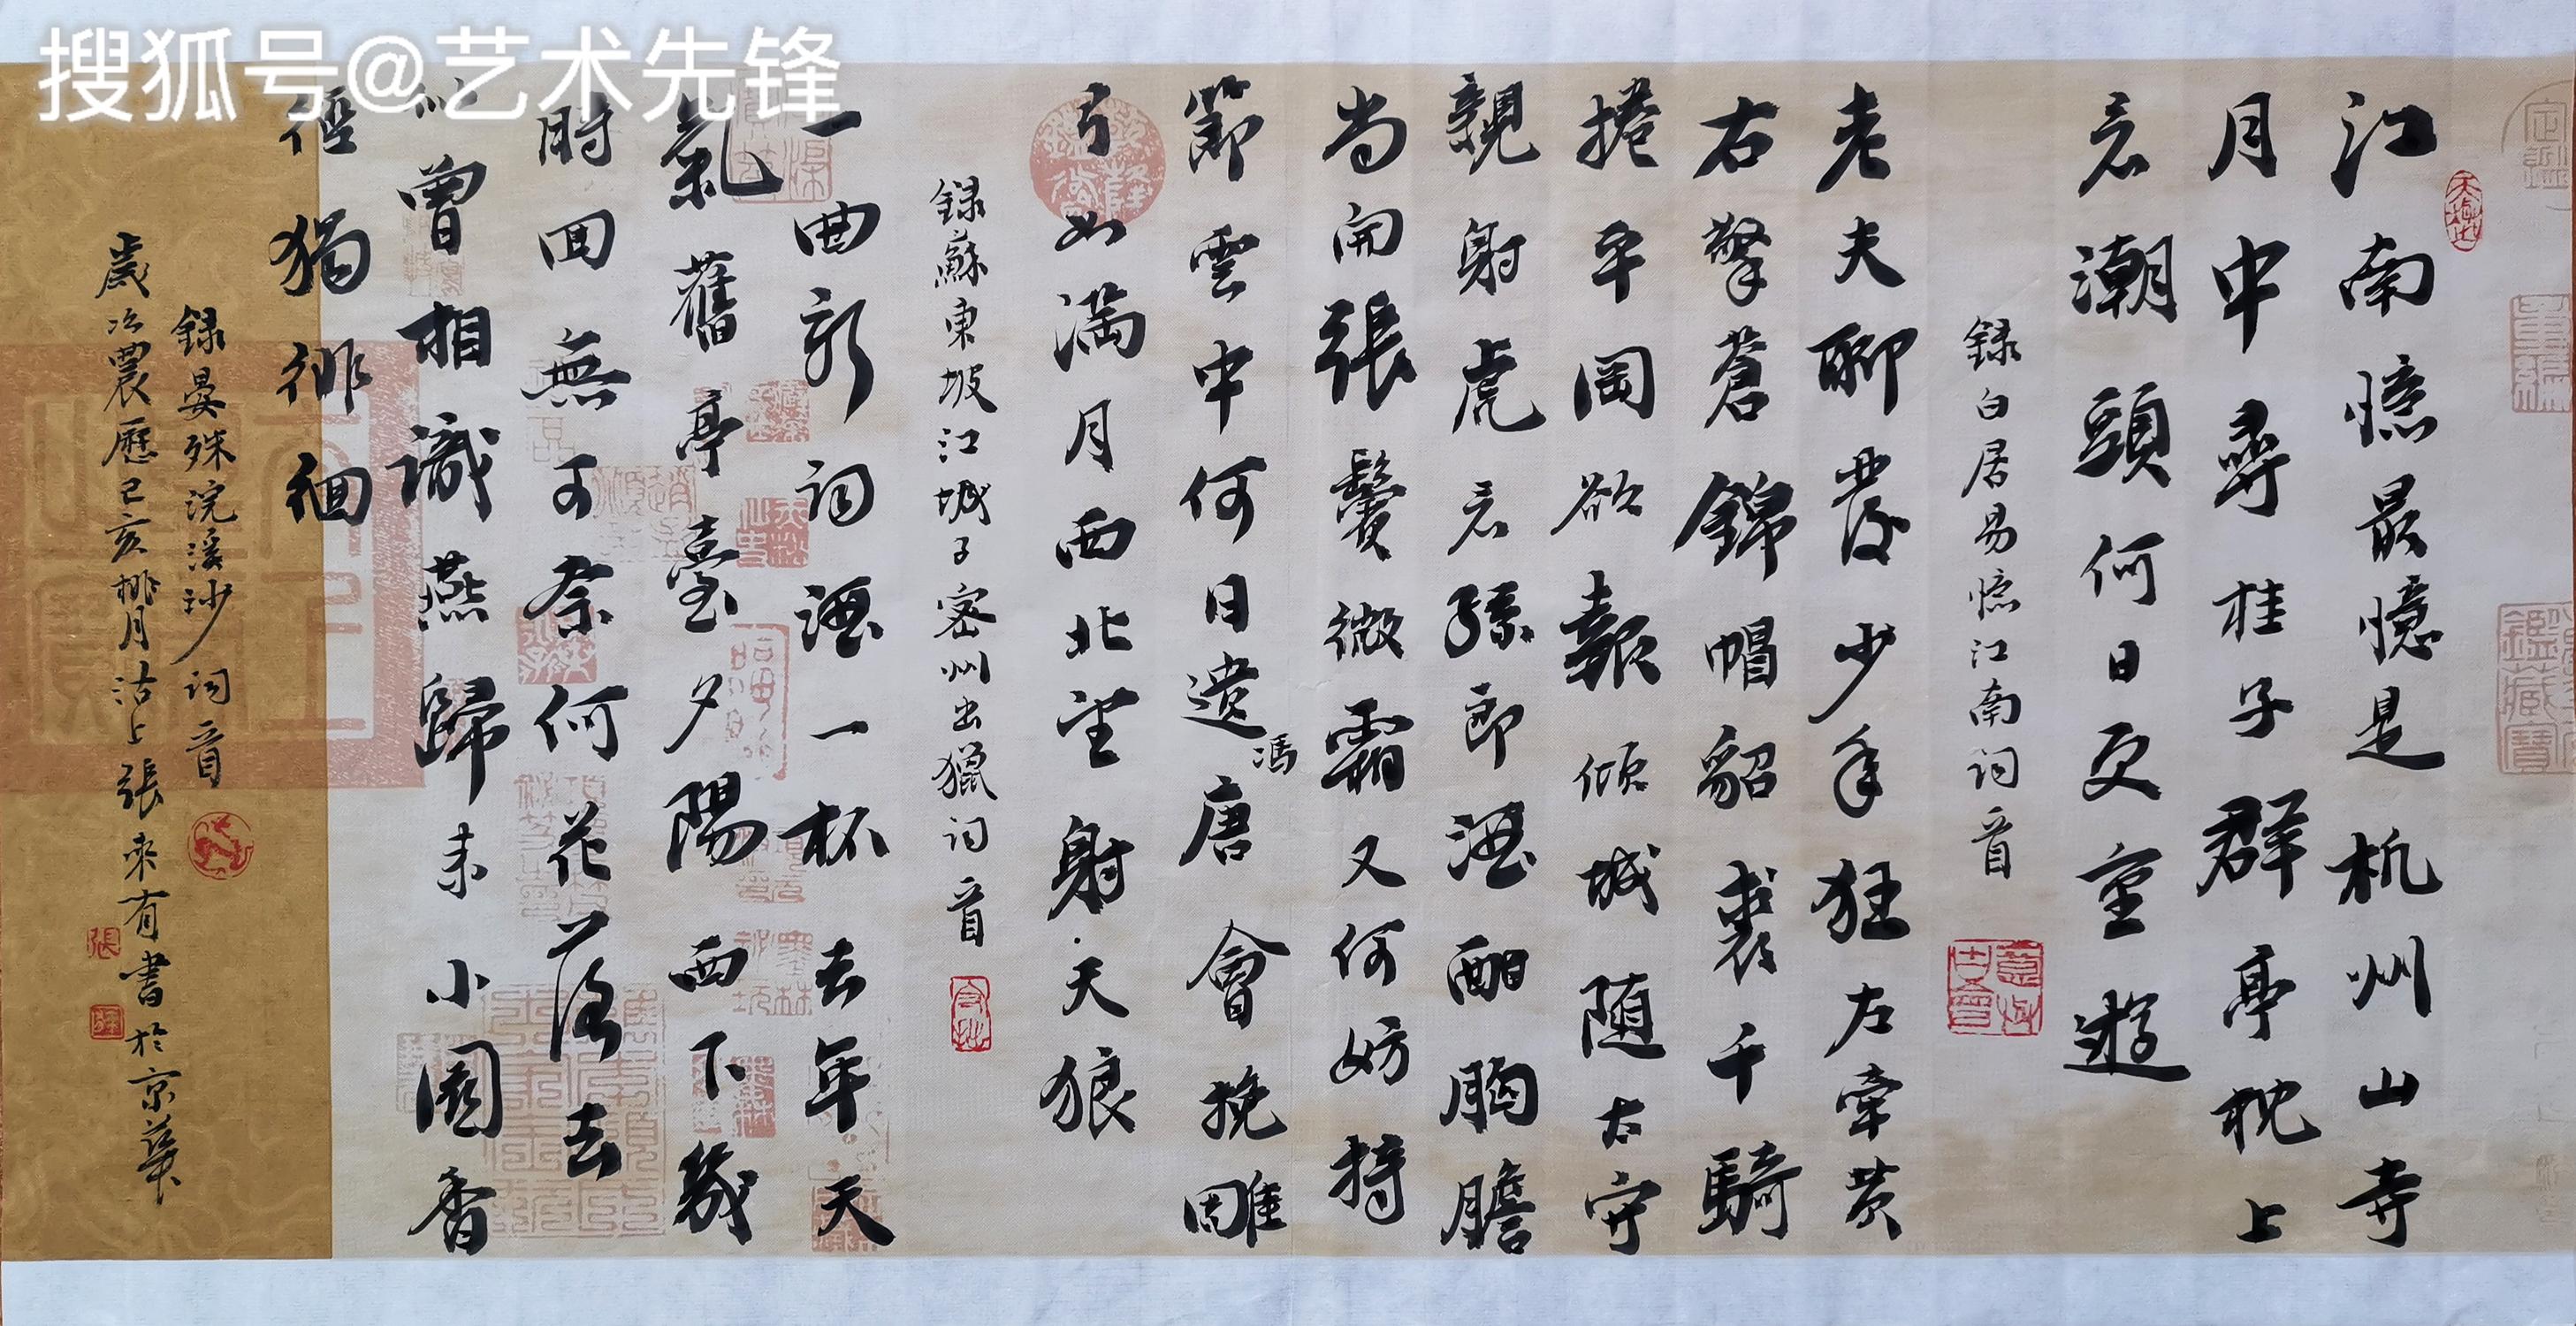 搜狐号@艺术先锋
江南憶最憶是杭州山寺
月中尋桂子群亭枕上
看潮頭何日更重遊
録白居易憶江南詞一首
老夫聊發少年狂左牽黄
右擎蒼錦帽貂裘千騎
捲平岡欲報傾城隨太守
親射虎看孫郎酒酣胸膽
尚開張鬢微霜又何妨持
節雲中何日遣馮唐會挽雕
弓如滿月西北望射天狼
録蘇東坡江城子密州出獵詞一首
一曲新詞酒一杯去年天
氣舊亭臺夕陽西下幾
時回無可奈何花落去
似曾相識燕歸来小園香
徑獨徘徊
録晏殊浣溪沙詞一首
歲次農歷己亥桃月沽上張來有書於京華
張